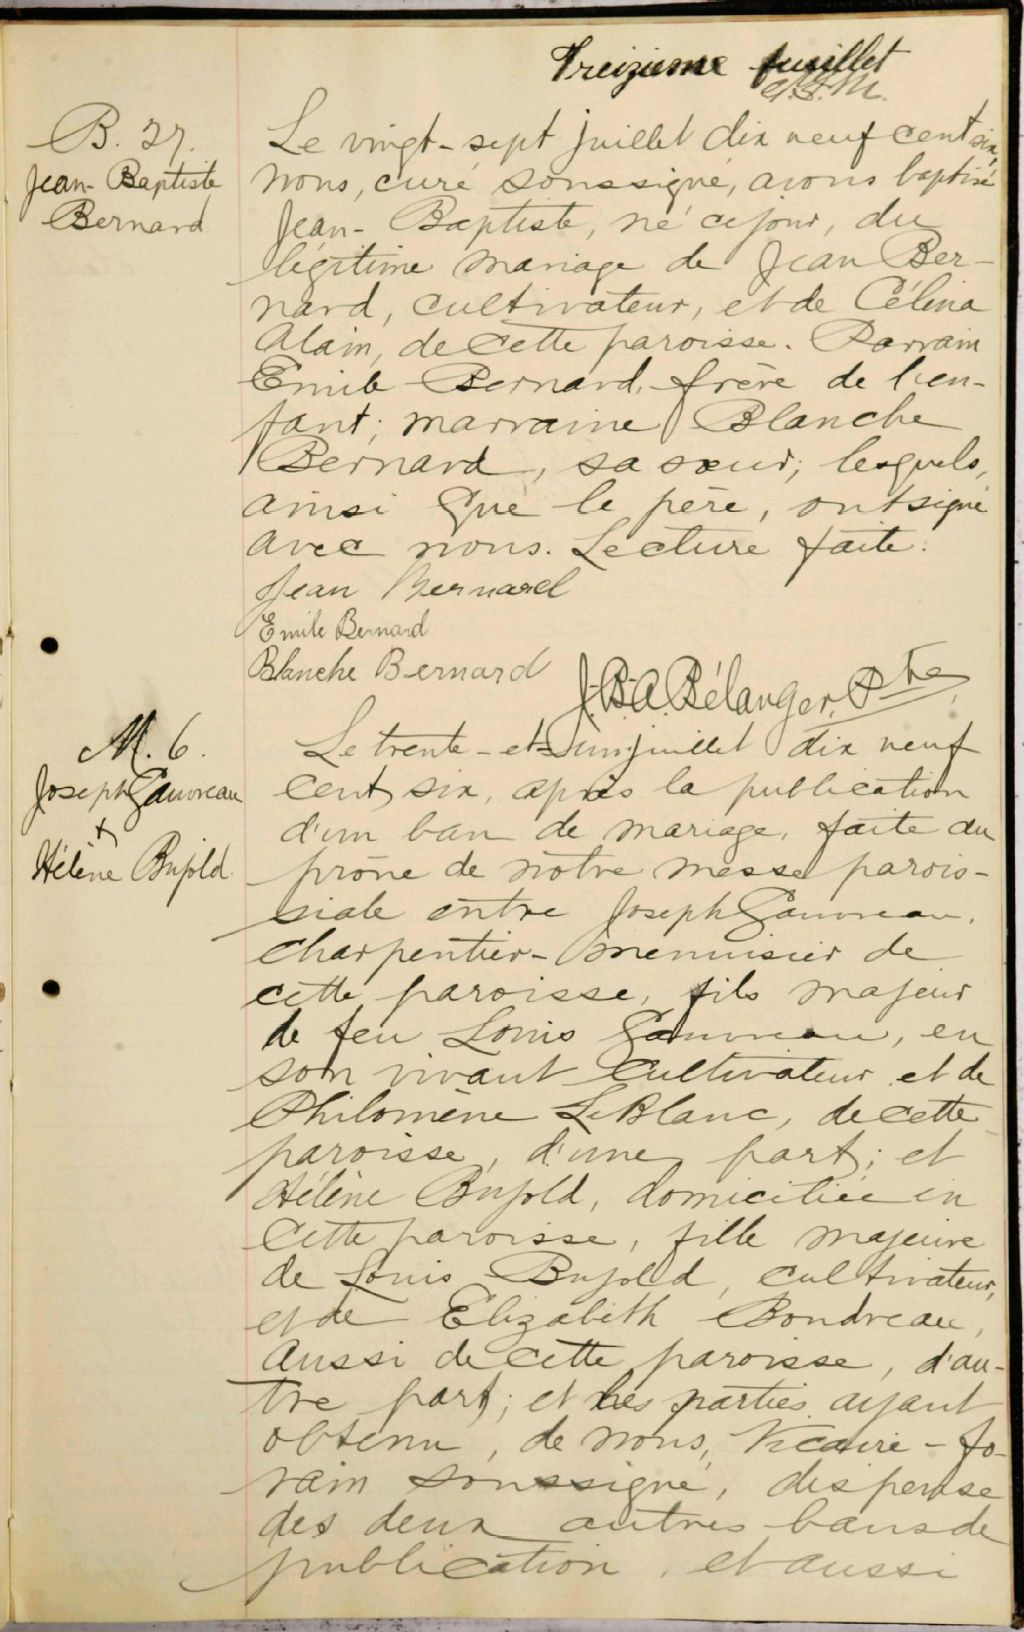 Treizieme feuillet
B. 27.
Jean-Baptiste
Bernard
Le vingt-sept juillet dix neuf cent six,
nous, curé soussigné, avons baptisé
Jean-Baptiste, né ce jour, du
légitime mariage de Jean Ber-
nard, cultivateur, et de Célina
Alain, de cette paroisse. Parrain
Emile Bernard, frère de l'en-
fant; marraine Blanche
Bernard, sa sœur; lesquels,
ainsi que le père, ont signé
avec nous. Lecture faite.
Jean Bernard
Emile Bernard
Blanche Bernard
J.B.A. Bélanger, Ptre
M. 6.
Joseph Gauvreau
&
Hélène Bujold.
Le trente-et-un juillet dix neuf
cent six, après la publication
d'un ban de mariage, faite au
prône de nôtre messe parois-
siale entre Joseph Gauvreau,
charpentier-menuisier de
cette paroisse, fils majeur
de feu Louis Gauvreau, en
son vivant cultivateur et de
Philomène LeBlanc, de cette
paroisse, d'une part; et
Hélène Bujold, domiciliée en
cette paroisse, fille majeure
de Louis Bujold, cultivateur,
et de Elizabeth Boudreau,
aussi de cette paroisse, d'au-
tre part; et les parties ayant
obtenu, de nous, Vicaire-fo-
rain soussigné, dispense
des deux autres bans de
publication, et aussi